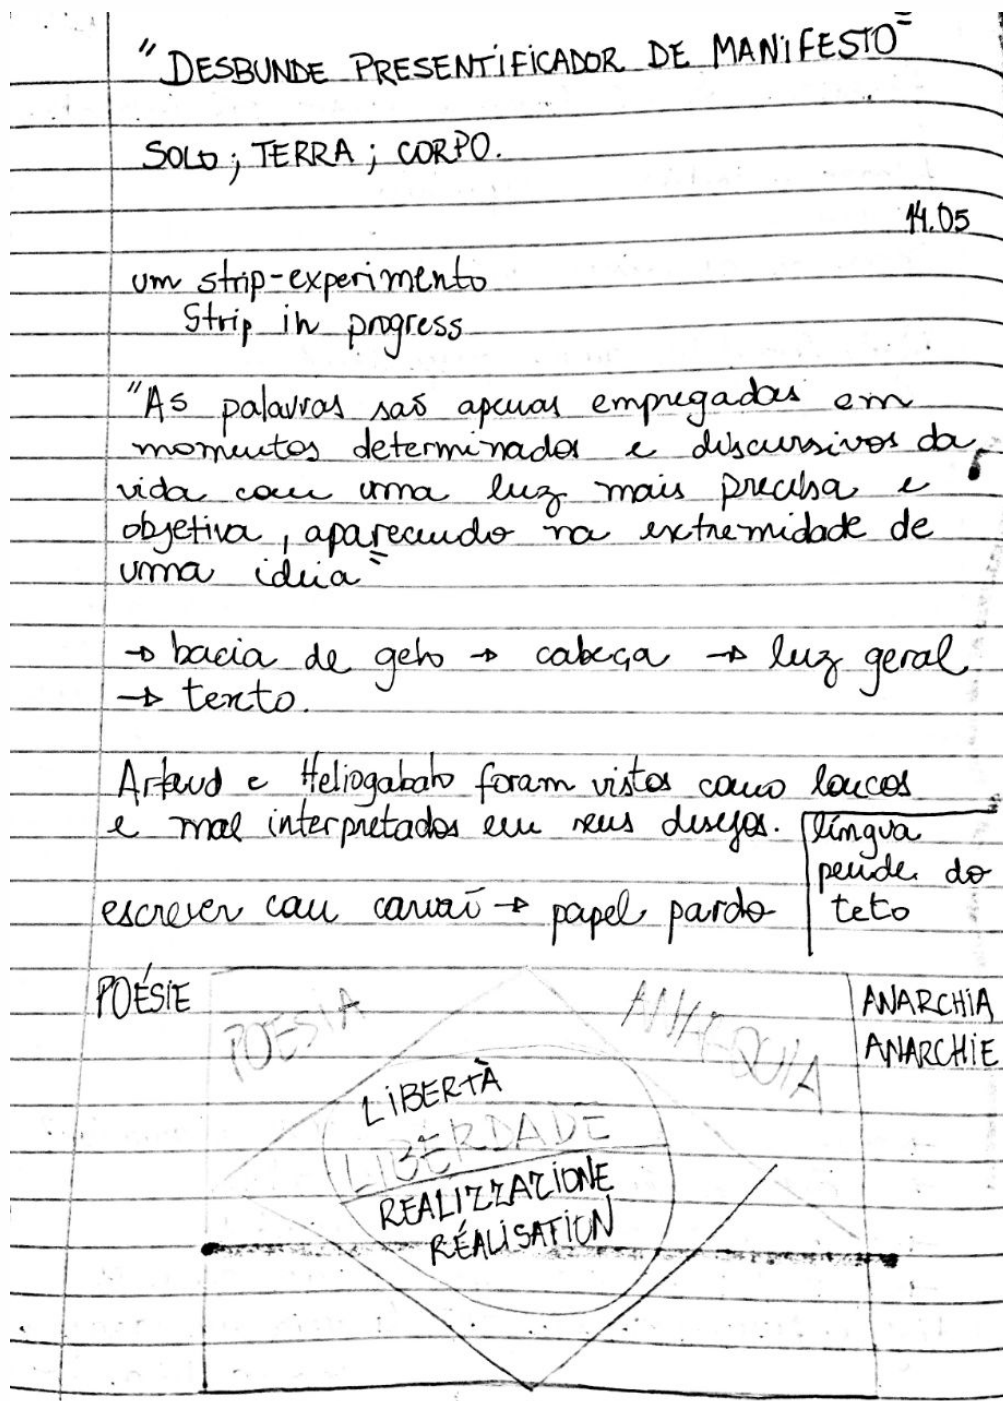 "DESBUNDE PRESENTIFICADOR DE MANIFESTO"
SOLO; TERRA; CORPO.
14.05
um strip-experimento
Strip in progress
"As palavras são apenas empregadas em
momentos determinados e discursivos da
vida como uma luz mais precisa e
objetiva, aparecendo na extremidade de
uma ideia"
→ bacia de gelo → cabeça → luz geral
→ texto.
Artaud e Heliogabalo foram vistos como loucos
e mal interpretados em seus desejos.
língua
pende do
teto
escrever com carvão → papel pardo
POÉSIE
POESIA
ANARQUIA
ANARCHIA
ANARCHIE
LIBERTÀ
LIBERDADE
REALIZZAZIONE
RÉALISATION